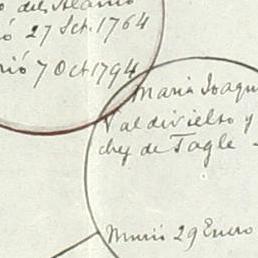 del Alamo
ó 27 Set. 1764
rió 7 Oct 1794
Maria Joaqu
Valdivielso y
chz de Tagle
Murió 29 Enero